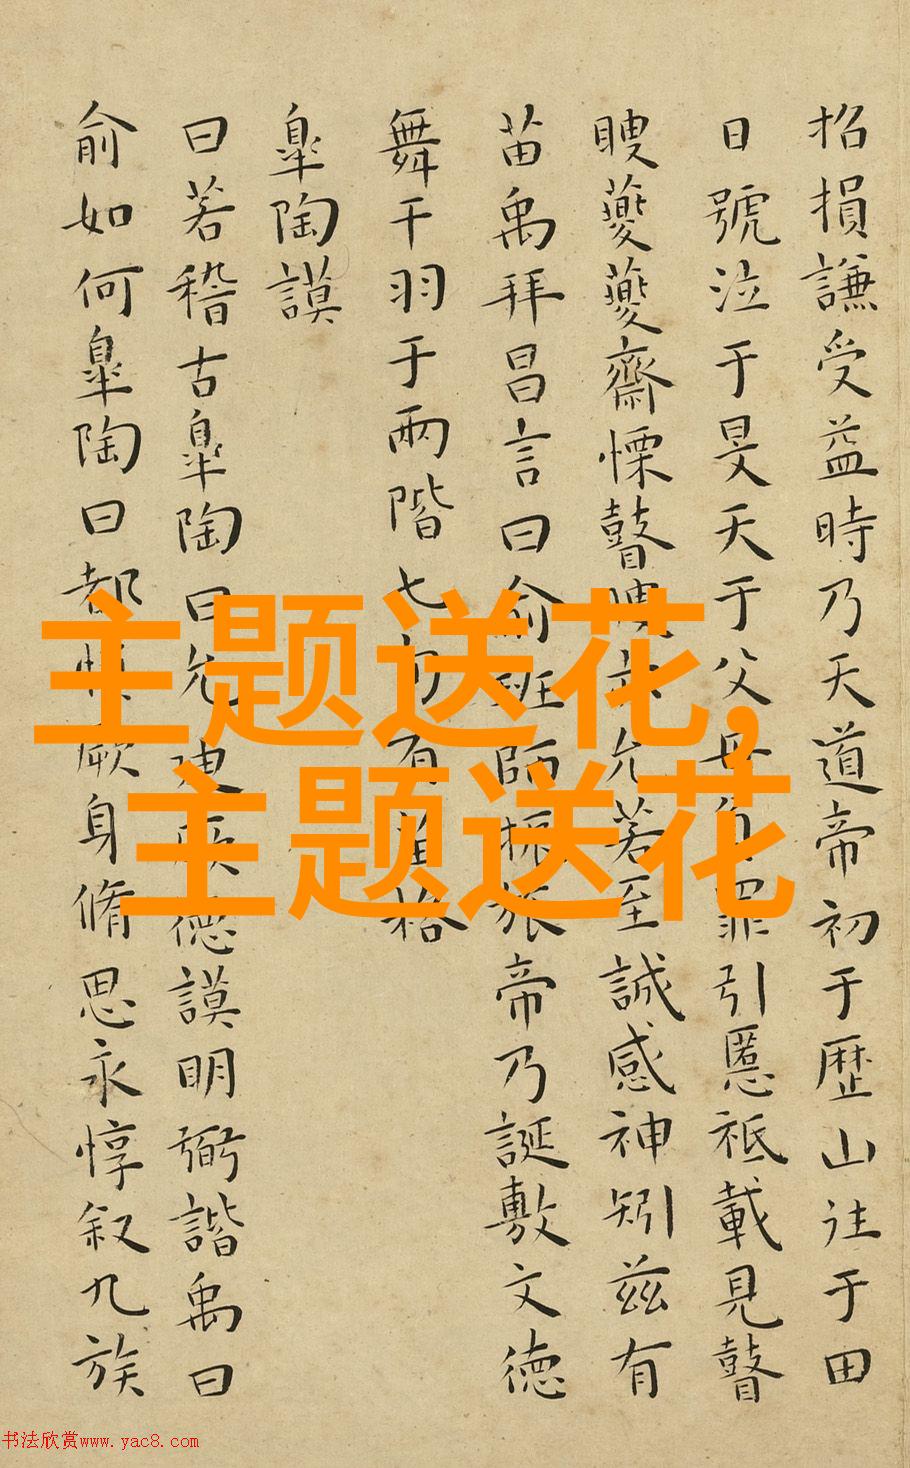 招損謙受益時乃天道帝初于歴山往于田
日號泣于旻天于父母負罪引慝祗載見瞽
瞍夔夔齋慄瞽瞍亦允若至誠感神矧兹有
苗禹拜昌言曰俞班師振旅帝乃誕敷文德
舞干羽于兩階七旬有苗格
皐陶謨
曰若稽古皐陶曰允迪厥德謨明弼諧禹曰
俞如何皐陶曰都慎厥身脩思永惇叙九族
主题送花,
主题送花
书法欣赏www.yac8.com